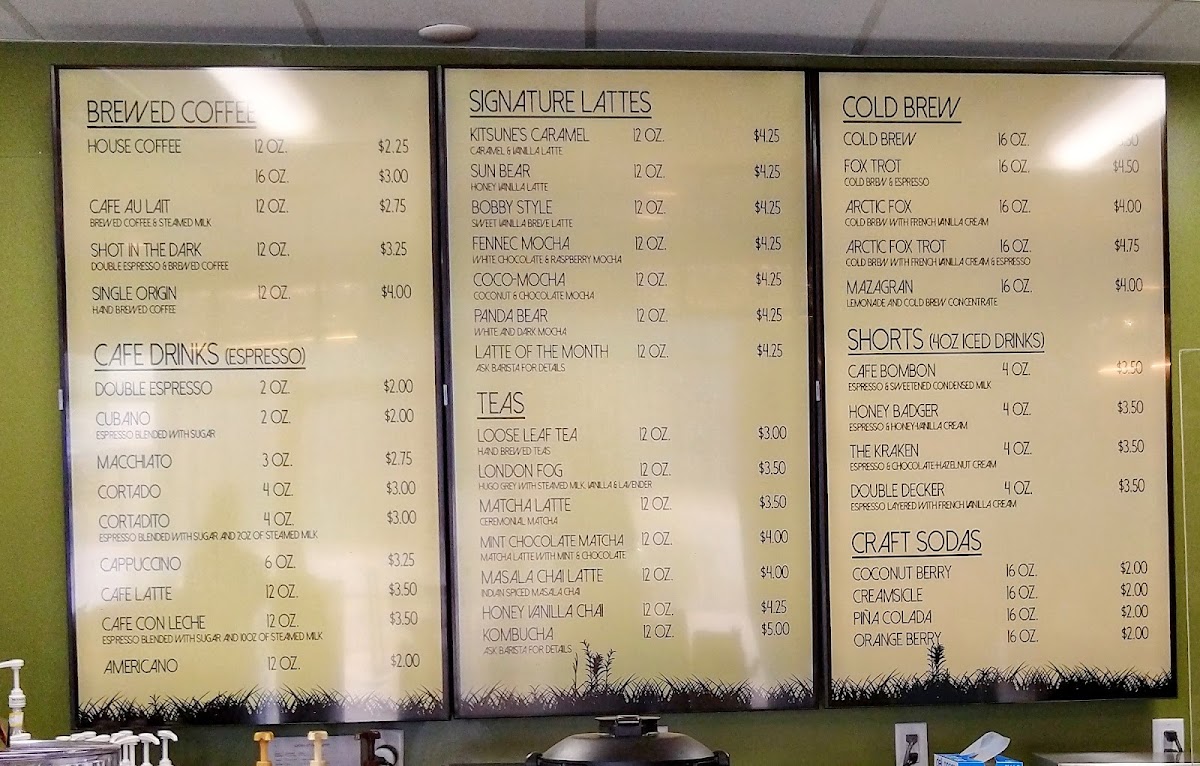 BREWED COFFEE
HOUSE COFFEE 12 OZ. $2.25
16 OZ. $3.00
CAFE AU LAIT 12 OZ. $2.75
BREWED COFFEE & STEAMED MILK
SHOT IN THE DARK 12 OZ. $3.25
DOUBLE ESPRESSO & BREWED COFFEE
SINGLE ORIGIN 12 OZ. $4.00
HAND BREWED COFFEE
CAFE DRINKS (ESPRESSO)
DOUBLE ESPRESSO 2 OZ. $2.00
CUBANO 2 OZ. $2.00
ESPRESSO BLENDED WITH SUGAR
MACCHIATO 3 OZ. $2.75
CORTADO 4 OZ. $3.00
CORTADITO 4 OZ. $3.00
ESPRESSO BLENDED WITH SUGAR AND 2OZ OF STEAMED MILK
CAPPUCCINO 6 OZ. $3.25
CAFE LATTE 12 OZ. $3.50
CAFE CON LECHE 12 OZ. $3.50
ESPRESSO BLENDED WITH SUGAR AND 10OZ OF STEAMED MILK
AMERICANO 12 OZ. $2.00
SIGNATURE LATTES
KITSUNE'S CARAMEL 12 OZ. $4.25
CARAMEL & VANILLA LATTE
SUN BEAR 12 OZ. $4.25
HONEY VANILLA LATTE
BOBBY STYLE 12 OZ. $4.25
SWEET VANILLA BREVE LATTE
FENNEC MOCHA 12 OZ. $4.25
WHITE CHOCOLATE & RASPBERRY MOCHA
COCO-MOCHA 12 OZ. $4.25
COCONUT & CHOCOLATE MOCHA
PANDA BEAR 12 OZ. $4.25
WHITE AND DARK MOCHA
LATTE OF THE MONTH 12 OZ. $4.25
ASK BARISTA FOR DETAILS
TEAS
LOOSE LEAF TEA 12 OZ. $3.00
HAND BREWED TEAS
LONDON FOG 12 OZ. $3.50
HUGO GREY WITH STEAMED MILK, VANILLA & LAVENDER
MATCHA LATTE 12 OZ. $3.50
CEREMONIAL MATCHA
MINT CHOCOLATE MATCHA 12 OZ. $4.00
MATCHA LATTE WITH MINT & CHOCOLATE
MASALA CHAI LATTE 12 OZ. $4.00
INDIAN SPICED MASALA CHAI
HONEY VANILLA CHAI 12 OZ. $4.25
KOMBUCHA 12 OZ. $5.00
ASK BARISTA FOR DETAILS
COLD BREW
COLD BREW 16 OZ.
FOX TROT 16 OZ. $4.50
COLD BREW & ESPRESSO
ARCTIC FOX 16 OZ. $4.00
COLD BREW WITH FRENCH VANILLA CREAM
ARCTIC FOX TROT 16 OZ. $4.75
COLD BREW WITH FRENCH VANILLA CREAM & ESPRESSO
MAZAGRAN 16 OZ. $4.00
LEMONADE AND COLD BREW CONCENTRATE
SHORTS (4OZ ICED DRINKS)
CAFE BOMBON 4 OZ. $3.50
ESPRESSO & SWEETENED CONDENSED MILK
HONEY BADGER 4 OZ. $3.50
ESPRESSO & HONEY-VANILLA CREAM
THE KRAKEN 4 OZ. $3.50
ESPRESSO & CHOCOLATE-HAZELNUT CREAM
DOUBLE DECKER 4 OZ. $3.50
ESPRESSO LAYERED WITH FRENCH VANILLA CREAM
CRAFT SODAS
COCONUT BERRY 16 OZ. $2.00
CREAMSICLE 16 OZ. $2.00
PIÑA COLADA 16 OZ. $2.00
ORANGE BERRY 16 OZ. $2.00